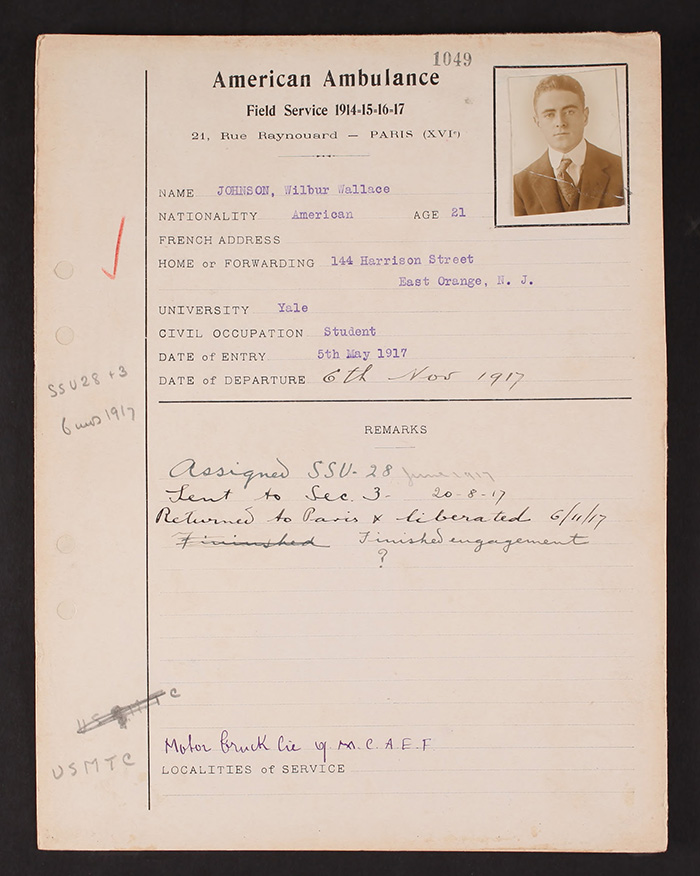 1049
American Ambulance
Field Service 1914-15-16-17
21, Rue Raynouard — PARIS (XVIe)
NAME JOHNSON, Wilbur Wallace
NATIONALITY American AGE 21
FRENCH ADDRESS
HOME or FORWARDING 144 Harrison Street
East Orange, N. J.
UNIVERSITY Yale
CIVIL OCCUPATION Student
DATE of ENTRY 5th May 1917
DATE of DEPARTURE 6th Nov 1917
SSU28 +3
6 mos 1917
REMARKS
Assigned SSU-28 June 1917
Sent to Sec. 3- 20-8-17
Returned to Paris & liberated 6/11/17
Fininshed Finished engagement
?
USMTC
Motor Truck Cie Q M. C. A. E. F
USMTC
LOCALITIES of SERVICE